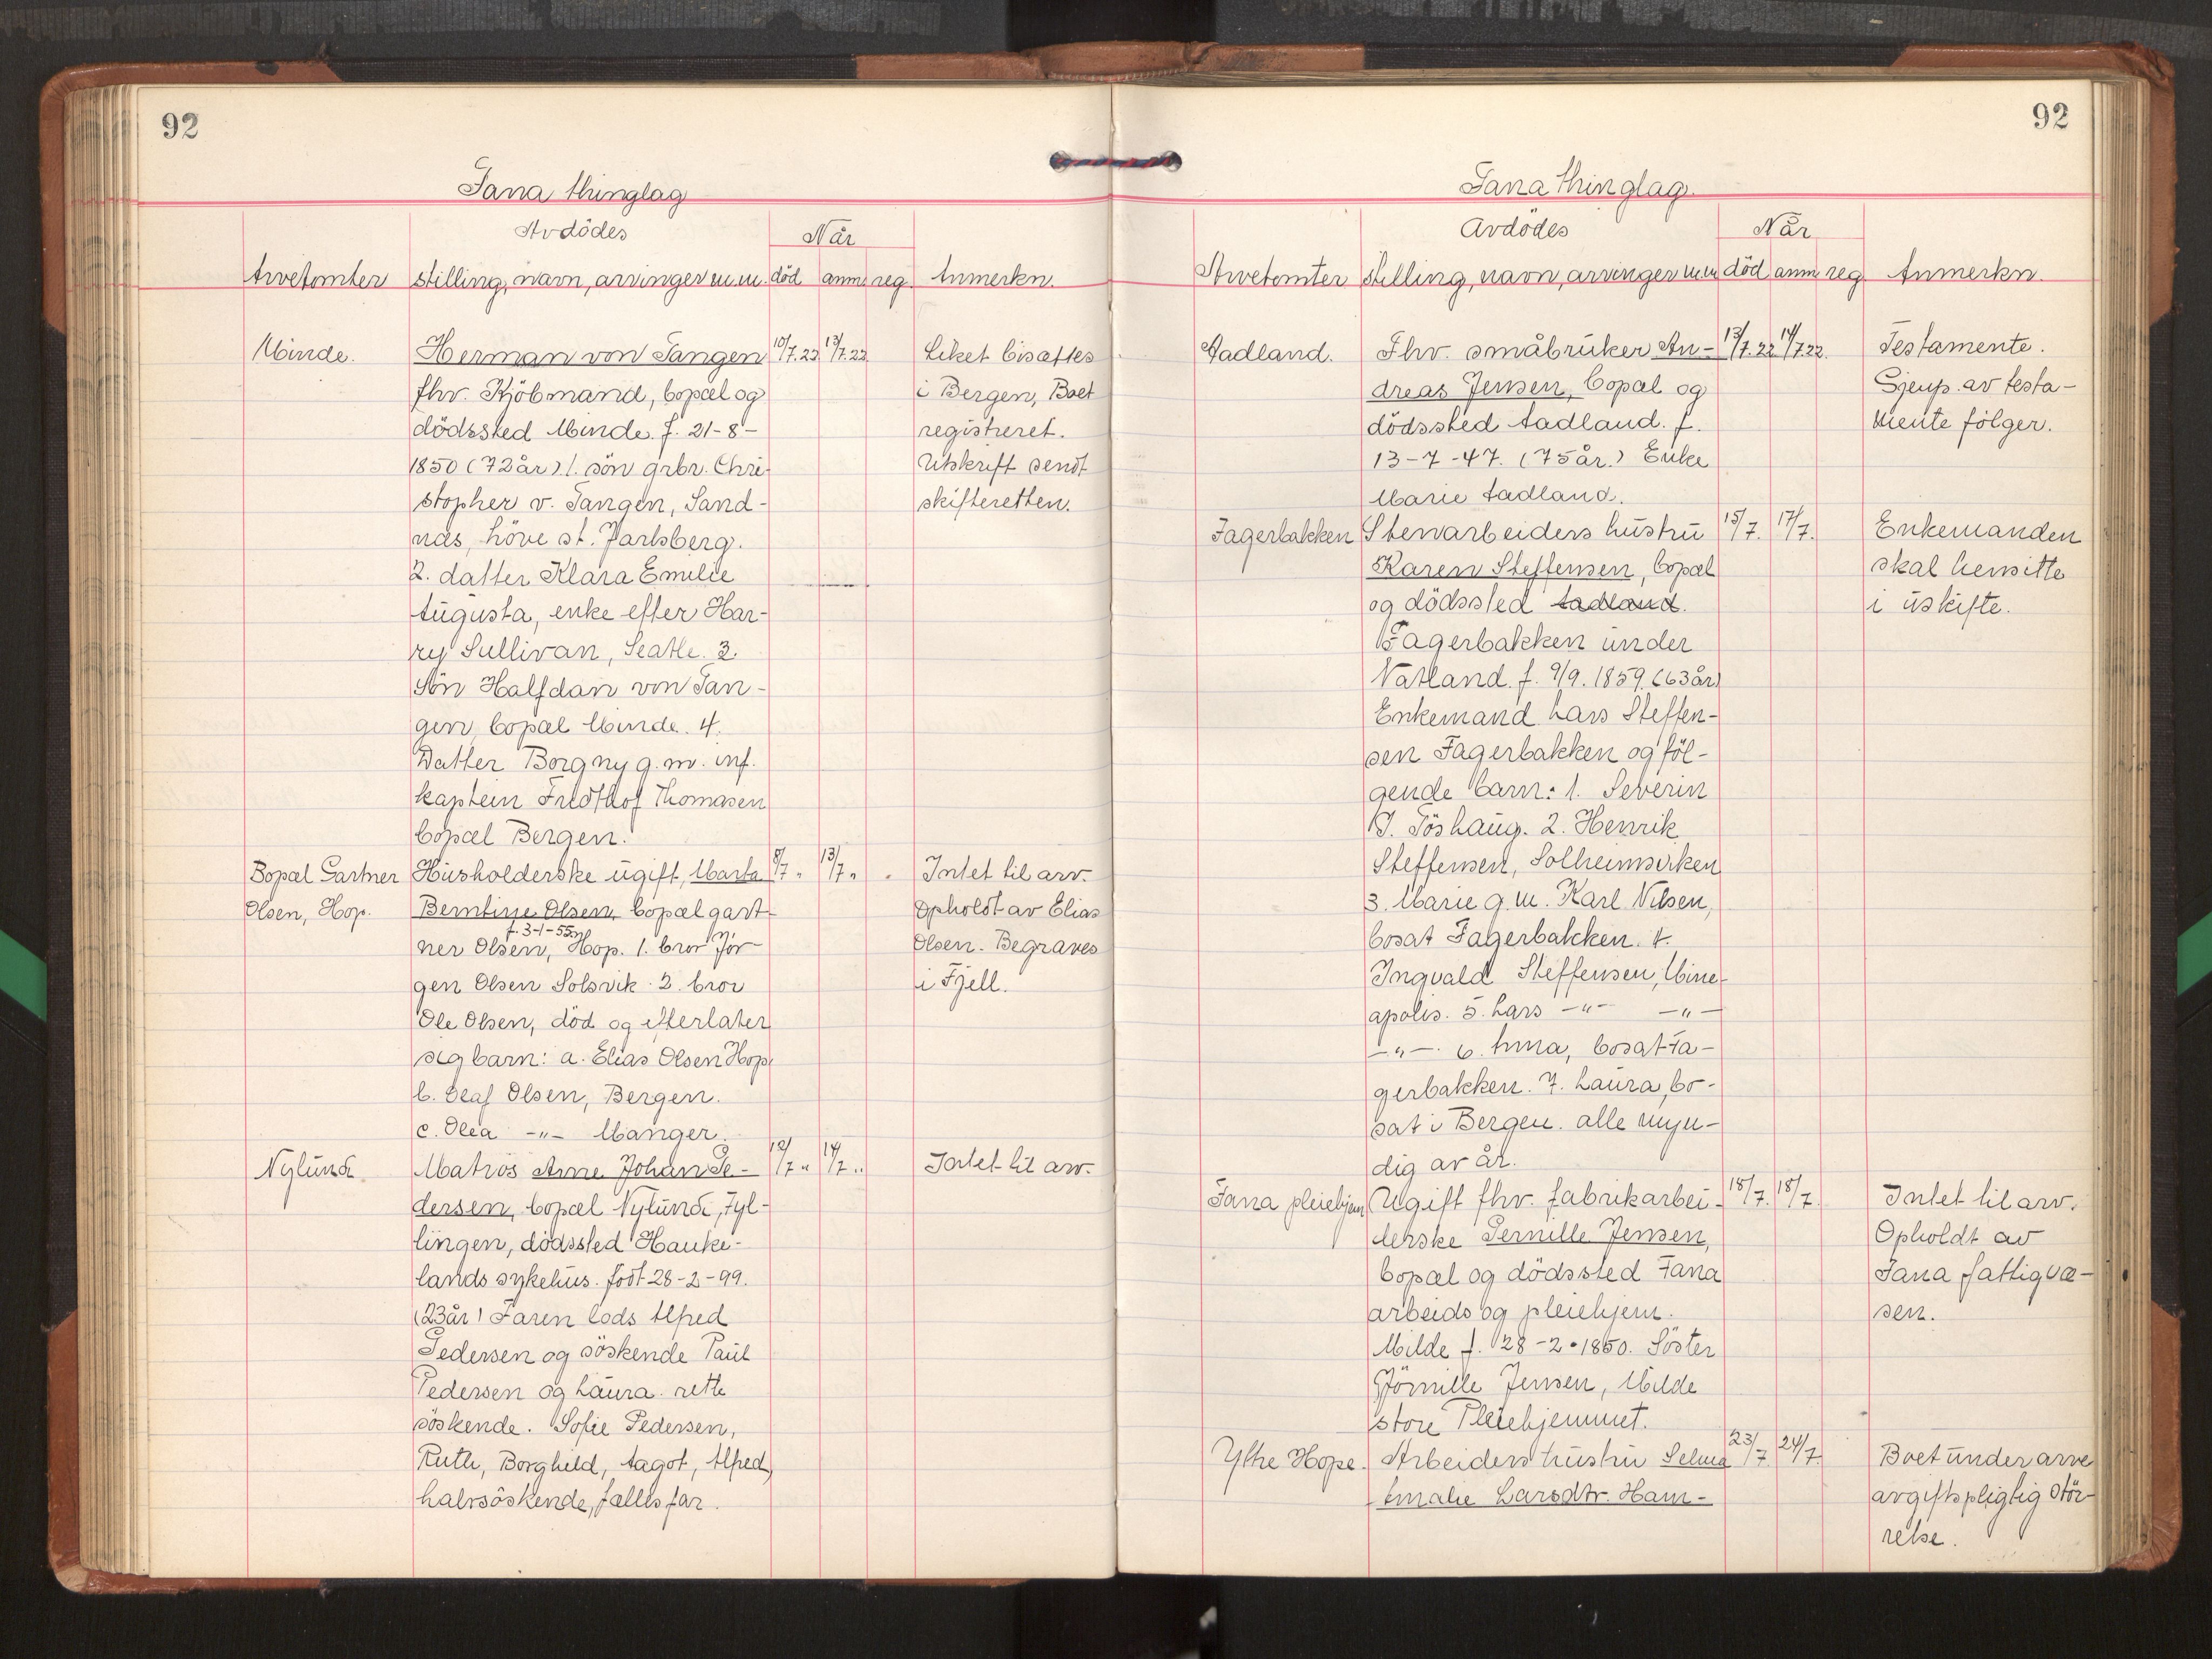 92
Fana thinglag
Avdödes
Når
Arvetomter stilling, navn, arvinger m.m. död anm. reg. Anmerkn.
Minde. Herman von Tangen 10/7.22 13/7.22. Liket bisættes
fhv. Kjöbmand, bopæl og i Bergen, Boet
dödssted Minde. f. 21-8- registreret.
1850 (72 år). 1. sön grbr. Chri- Utskrift sendt
stopher v. Tangen, Sand- skifteretten.
næs, Höve st. Jarlsberg.
2. datter Klara Emilie
Augusta, enke efter Har-
ry Sullivan, Seatle. 3.
Sön Halfdan von Tan-
gen, bopæl Minde. 4.
Datter Borgny g.m. inf.
kaptein Fridthof Thomasen
bopæl Bergen.
Bopæl Gartner Husholderske ugift, Marta 8/7 " 13/7 " Intet til arv.
Olsen, Hop. Berntine Olsen, bopæl gart- Opholdt av Elias
f. 3-1-55
ner Olsen, Hop. 1. bror Jör- Olsen. Begraves
gen Olsen Solsvik. 2. bror i Fjell.
Ole Olsen, död og efterlater
sig barn: a. Elias Olsen Hop,
b. Olaf Olsen, Bergen.
c. Olea -"- Manger.
Nylund. Matros Arne Johan Pe- 12/7 " 14/7 " Intet til arv.
dersen, bopæl Nylund, Fyl-
lingen, dödssted Hauke-
lands sykehus. född 28-2-99.
(23 år) Faren lods Alfred
Pedersen og söskende Paul
Pedersen og Laura. rette
söskende. Sofie Pedersen,
Ruth, Borghild, Aagot, Alfred,
halvsöskende, fælles far.
92
Fana thinglag.
Avdödes
Når
Arvetomter stilling, navn, arvinger m.m. död anm. reg. Anmerkn.
Aadland. Fhv. småbruker An- 13/7.22 14/7.22. Testamente.
dreas Jensen, bopæl og Gjenp. av testa-
dödssted Aadland. f. mente fölger.
13-7-47. (75 år.) Enke
Marie Aadland.
Fagerbakken Stenarbeiders hustru 15/7. 17/7. Enkemanden
Karen Steffensen, bopæl skal hensitte
og dödssted Aadland. i uskifte.
Fagerbakken under
Natland. f. 9/9. 1859. (63 år)
Enkemand Lars Steffen-
sen Fagerbakken og föl-
gende barn: 1. Severin
J. Töshaug. 2. Henrik
Steffensen, Solheimsviken
3. Marie g.m. Karl Nilsen,
bosat Fagerbakken. 4.
Ingvald Steffensen, Mine-
apolis. 5. Lars -"- -"-
-"-. 6. Anna, bosat Fa-
gerbakken. 7. Laura, bo-
sat i Bergen. alle myn-
dig av år.
Fana pleiehjem Ugift fhv. fabrikarbei- 18/7. 18/7. Intet til arv.
derske Pernille Jensen, Opholdt av
bopæl og dödssted Fana Fana fattigvæ-
arbeids og pleiehjem. sen.
Milde f. 28-2-1850. Söster
Jörnille Jensen, Milde
store Pleiehjemmet.
Ytre Hope. Arbeiders hustru Selma 23/7 24/7 Boet under arve
Amalie Larsdtr. Ham- avgiftspligtig stör-
relse.